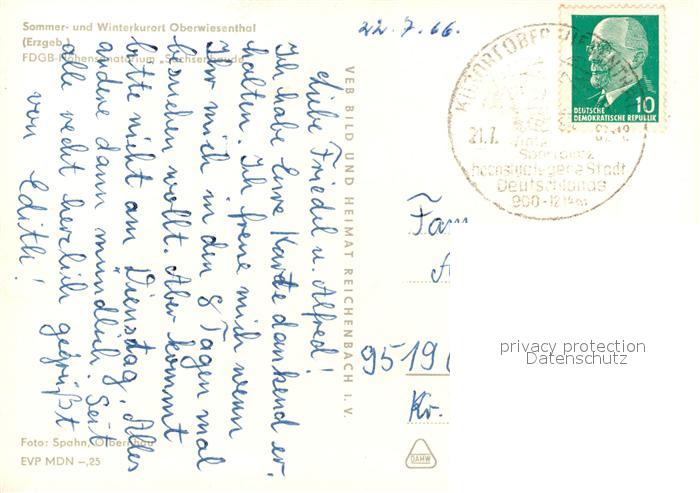 Sommer- und Winterkurort Oberwiesenthal
(Erzgeb.)
FDGB-Höhensanatorium „Sachsenbaude"
22.7.66.
Liebe Friedel u. Alfred!
Ich habe Eure Karte dankend er-
halten. Ich freue mich wenn
Ihr mich in den 8 Tagen mal
besuchen wollt. Aber kommt
bitte nicht am Dienstag. Alles
andere dann mündlich. Seit
alle recht herzlich gegrüßt
von Edith!
VEB BILD UND HEIMAT REICHENBACH I. V.
KURORT OBERWIESENTHAL
21.7.
höchstgelegene Stadt
Deutschlands
900-12
DEUTSCHE
DEMOKRATISCHE REPUBLIK
10
Fam
9519
Kr.
privacy protection
Datenschutz
Foto: Spahn, Olbernhau
EVP MDN -,25
DAHW